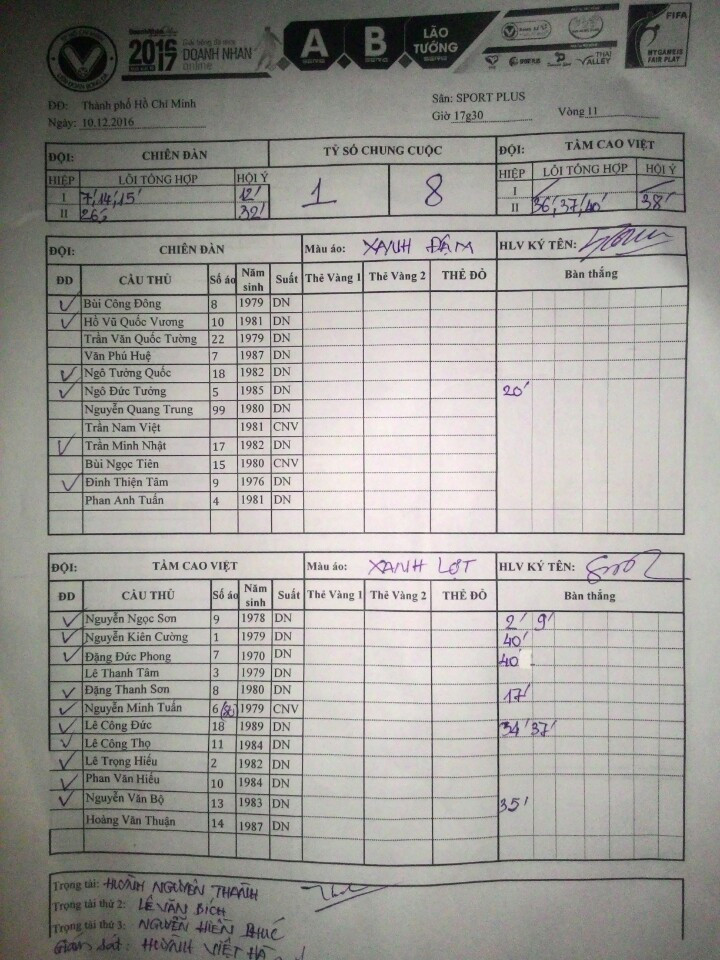 2016
DOANH NHÂN
online
A
B
LÃO
TƯỚNG
THAI
VALLEY
FIFA
MY GAME IS
FAIR PLAY
ĐĐ: Thành phố Hồ Chí Minh Sân: SPORT PLUS
Ngày: 10.12.2016 Giờ 17g30 Vòng 11
ĐỘI: CHIÊN ĐÀN TỶ SỐ CHUNG CUỘC ĐỘI: TẦM CAO VIỆT
HIỆP LỖI TỔNG HỢP HỘI Ý 1 8 HIỆP LỖI TỔNG HỢP HỘI Ý
I 7,14,15' 12' I
II 26' 32' II 36',37',40' 38'
ĐỘI: CHIÊN ĐÀN Màu áo: XANH ĐẬM HLV KÝ TÊN:
ĐD CẦU THỦ Số áo Năm sinh Suất Thẻ Vàng 1 Thẻ Vàng 2 THẺ ĐỎ Bàn thắng
Bùi Công Đông 8 1979 DN
Hồ Vũ Quốc Vương 10 1981 DN
Trần Văn Quốc Tường 22 1979 DN
Văn Phú Huệ 7 1987 DN
Ngô Tưởng Quốc 18 1982 DN
Ngô Đức Tưởng 5 1985 DN 20'
Nguyễn Quang Trung 99 1980 DN
Trần Nam Việt 1981 CNV
Trần Minh Nhật 17 1982 DN
Bùi Ngọc Tiên 15 1980 CNV
Đinh Thiện Tâm 9 1976 DN
Phan Anh Tuấn 4 1981 DN
ĐỘI: TẦM CAO VIỆT Màu áo: XANH LỢT HLV KÝ TÊN:
ĐD CẦU THỦ Số áo Năm sinh Suất Thẻ Vàng 1 Thẻ Vàng 2 THẺ ĐỎ Bàn thắng
Nguyễn Ngọc Sơn 9 1978 DN 2' 9'
Nguyễn Kiên Cường 1 1979 DN 40'
Đặng Đức Phong 7 1970 DN 40
Lê Thanh Tâm 3 1979 DN
Đặng Thanh Sơn 8 1980 DN 17'
Nguyễn Minh Tuấn 6 1979 CNV
Lê Công Đức 18 1989 DN 34' 37'
Lê Công Thọ 11 1984 DN
Lê Trọng Hiếu 2 1982 DN
Phan Văn Hiếu 10 1984 DN
Nguyễn Văn Bộ 13 1983 DN 35'
Hoàng Văn Thuận 14 1987 DN
Trọng tài: HUỲNH NGUYÊN THANH
Trọng tài thứ 2: LÊ VĂN BÍCH
Trọng tài thứ 3: NGUYỄN HIỀN PHÚC
Giám sát: HUỲNH VIỆT HÀ